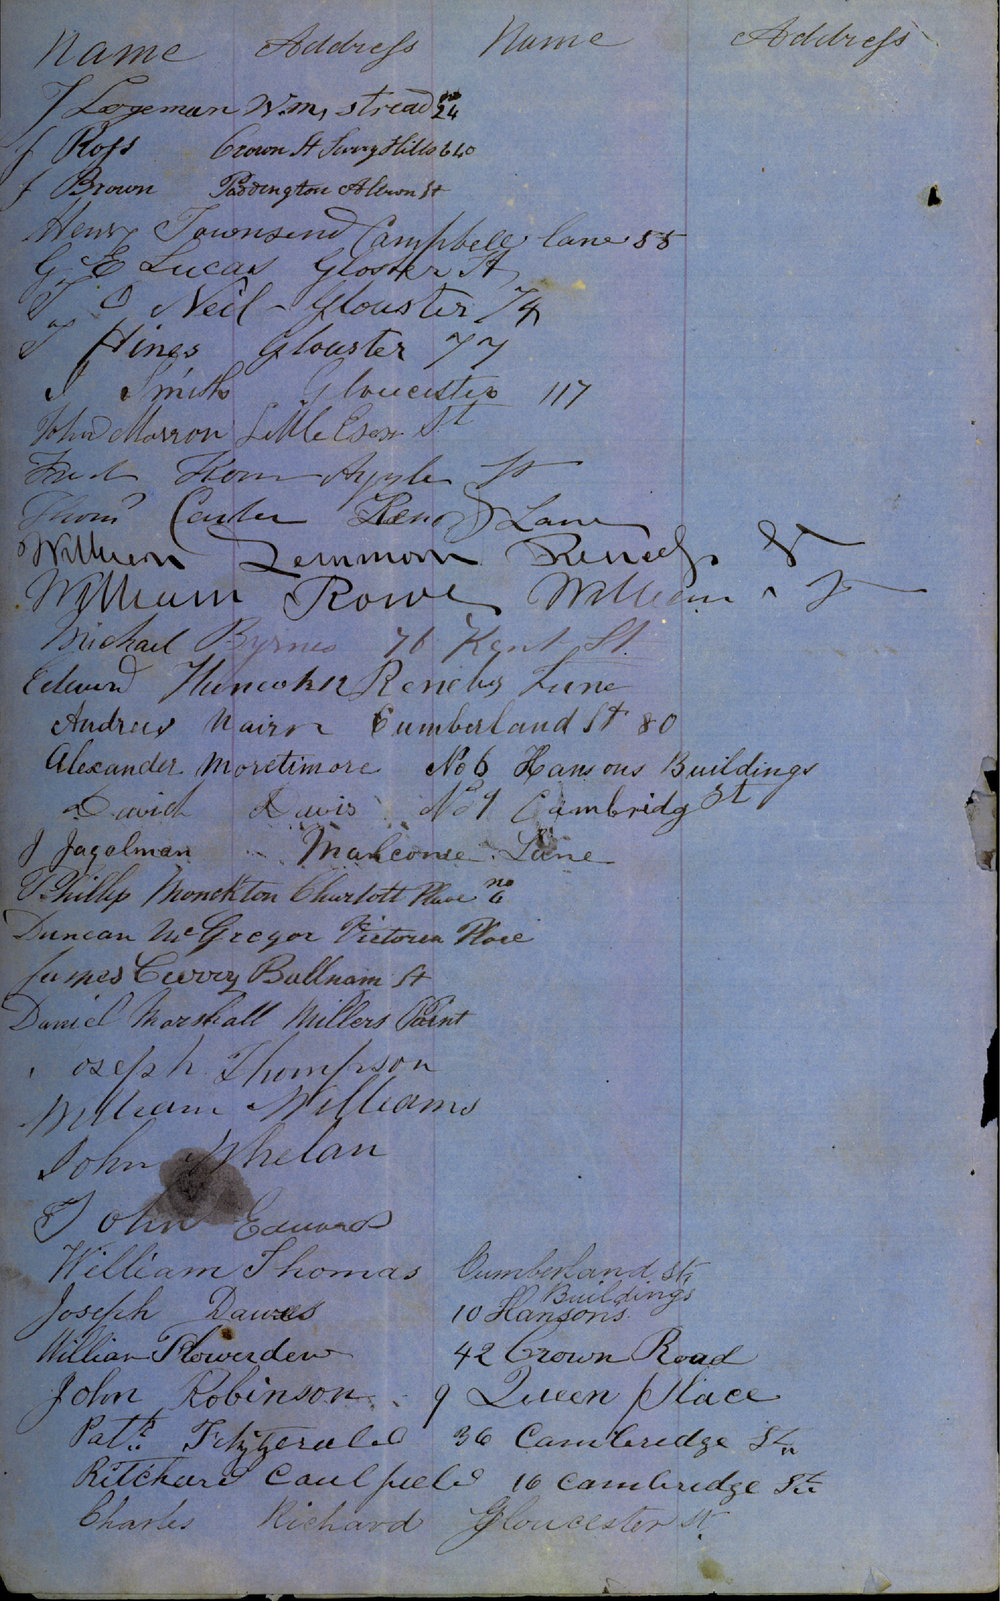 Name Address Name Address
J Logeman Wm, stread no 24
J Ross Crown St Surry Hills 640
J Brown Paddington Albion St
Henry Townsend Campbell lane 55
G E Lucas Gloster St
T O Neil - Glouster 74
T Hines Glouster 77
J Smith Gloucester 117
John Morron Little Esex St
Fred Apple St
Thoms Carter Lane
William Lemmon St
William Rowe William St
Michael Byrnes 76 Kent St.
Edward Lane
Andrew Nairn Cumberland St 80
Alexander Moretimore No 6 Hansons Buildings
David Davis No 7 Cambridg St
J Jagelman Lane
Phillip Monckton Charlott Place no 6
Duncan McGregor Victoria Place
James Curry St
Daniel Marshall Millers Point
Joseph Thompson
William Williams
John Whelan
John Edwards
William Thomas Cumberland St
Joseph Dawes 10 Hansons Buildings
William Flowerdew 42 Crown Road
John Robinson 9 Queen place
Patk Fitzgerald 36 Cambridge St
Ritchard Caulfield 16 Cambridge St
Charles Richard Gloucester St